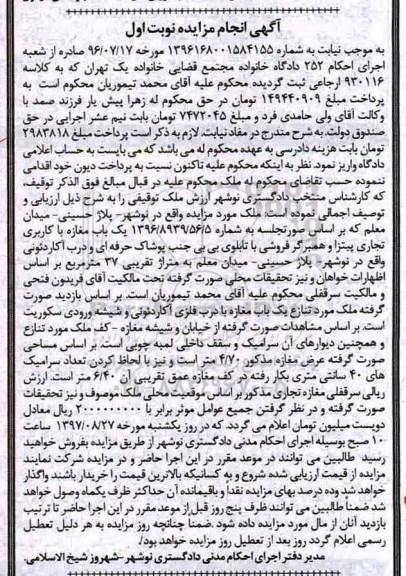 آگهی انجام مزایده نوبت اول
به موجب نیابت به شماره ۱۳۹۶۱۶۸۰۰۱۵۸۴۱۵۵ مورخه ۹۶/۰۷/۱۷ صادره از شعبه
اجرای احکام ۲۵۲ دادگاه خانواده مجتمع قضایی خانواده یک تهران که به کلاسه
۹۳۰۱۱۶ ارجاعی ثبت گردیده محکوم علیه آقای محمد تیموریان محکوم است به
پرداخت مبلغ ۱۴۹۴۴۰۹۰۹ تومان در حق محکوم له زهرا پیش یار فرزند صمد با
وکالت آقای ولی حامدی فرد و مبلغ ۷۴۷۲۰۴۵ تومان بابت نیم عشر اجرایی در حق
صندوق دولت. به شرح مندرج در مفاد نیابت. لازم به ذکر است پرداخت مبلغ ۲۹۸۳۸۱۸
تومان بابت هزینه دادرسی به عهده محکوم له می باشد که می بایست به حساب اعلامی
دادگاه واریز نمود. نظر به اینکه محکوم علیه تاکنون نسبت به پرداخت دیون خود اقدامی
ننموده حسب تقاضای محکوم له ملک محکوم علیه در قبال مبالغ فوق الذکر توقیف،
که کارشناس منتخب دادگستری نوشهر ارزش ملک توقیفی را به شرح ذیل ارزیابی و
توصیف اجمالی نموده است. ملک مورد مزایده واقع در نوشهر- پلاژ حسینی- میدان
معلم که بر اساس صورتجلسه به شماره ۱۳۹۶/۸۹۳۹/۵۶/۵ یک باب مغازه با کاربری
تجاری پیتزا و همبرگر فروشی با تابلوی بی بی جنب پوشاک حرفه ای و درب آکاردئونی
واقع در نوشهر- پلاژ حسینی- میدان معلم به متراژ تقریبی ۳۷ مترمربع بر اساس
اظهارات خواهان و نیز تحقیقات محلی صورت گرفته تحت مالکیت آقای فریدون فتحی
و مالکیت سرقفلی محکوم علیه آقای محمد تیموریان است. بر اساس بازدید صورت
گرفته ملک مورد تنازع یک باب مغازه با درب فلزی آکاردئونی و شیشه ورودی سکوریت
است. بر اساس مشاهدات صورت گرفته از خیابان و شیشه مغازه - کف ملک مورد تنازع
و همچنین دیوارهای آن سرامیک و سقف داخلی لمبه چوبی است. بر اساس مساحی
صورت گرفته عرض مغازه مذکور ۴/۷۰ متر است و نیز با لحاظ کردن تعداد سرامیک
های ۴۰ سانتی متری بکار رفته در کف مغازه عمق تقریبی آن ۶/۴۰ متر است. ارزش
ریالی سرقفلی مغازه تجاری مذکور بر اساس موقعیت محلی ملک موصوف و نیز تحقیقات
صورت گرفته و در نظر گرفتن جمیع عوامل موثر برابر با ۲۰۰۰۰۰۰۰۰۰ ریال معادل
دویست میلیون تومان اعلام می گردد. که در روز یکشنبه مورخه ۱۳۹۷/۰۸/۲۷ ساعت
۱۰ صبح بوسیله اجرای احکام مدنی دادگستری نوشهر از طریق مزایده بفروش خواهید
رسید طالبین می توانند در موعد مقرر در این اجرا حاضر و در مزایده شرکت نمایند
مزایده از قیمت ارزیابی شده شروع و به کسانیکه بالاترین قیمت را خریدار باشند واگذار
خواهد شد وده درصد بهای مزایده نقدا و باقیمانده آن حداکثر ظرف یکماه وصول خواهد
شد ضمنا طالبین می توانند ظرف پنج روز قبل از موعد مقرر در این اجرا حاضر تا ترتیب
بازدید آنان از مال مورد مزایده داده شود .ضمنا چنانچه روز مزایده به هر دلیل تعطیل
رسمی اعلام گردد روز بعد از تعطیل روز مزایده خواهد بود/.
مدیر دفتر اجرای احکام مدنی دادگستری نوشهر -شهروز شیخ الاسلامی.